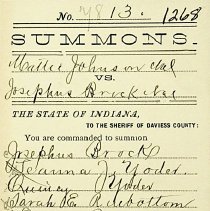 No. 13. 1268
SUMMONS.
Mattie Johnson et al
VS.
Josephus Brock et al
THE STATE OF INDIANA,
TO THE SHERIFF OF DAVIESS COUNTY:
You are commanded to summon
Josephus Brock
Yoder
Quincy Yoder
Sarah E. Rosebottom